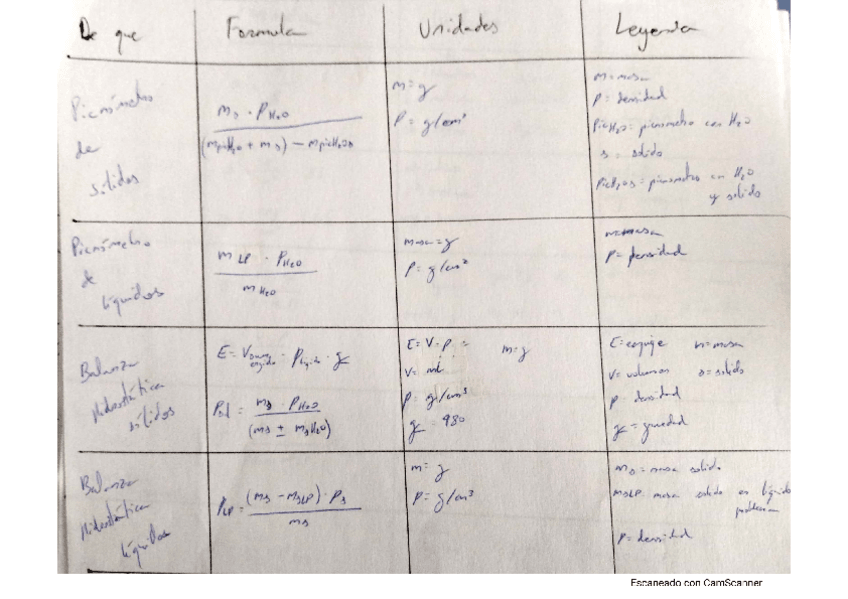 De que
Formula
Unidades
Leyenda
Picnómetro
de
sólidos
ms · PH2O
(mpicH2O + ms) − mpicH2Os
m = g
P = g/cm³
m = masa
P = densidad
PicH2O = picnometro con H2O
s = solido
PicH2Os = picnometro con H2O
y solido
Picnómetro
de
líquidos
mLP · PH2O
mH2O
masa = g
P = g/cm³
m = masa
P = densidad
Balanza
Hidrostática
sólidos
E = V · Plíquido · g
Psol = ms · PH2O
(ms ± msH2O)
E = V · P =
m = g
V = mL
P = g/cm³
g = 980
E = empuje m = masa
V = volumen s = solido
P = densidad
g = gravedad
Balanza
Hidrostática
líquidos
PLP = (ms − msLP) · Ps
ms
m = g
P = g/cm³
ms = masa solido
msLP = masa solido en líquido
problema
P = densidad
Escaneado con CamScanner